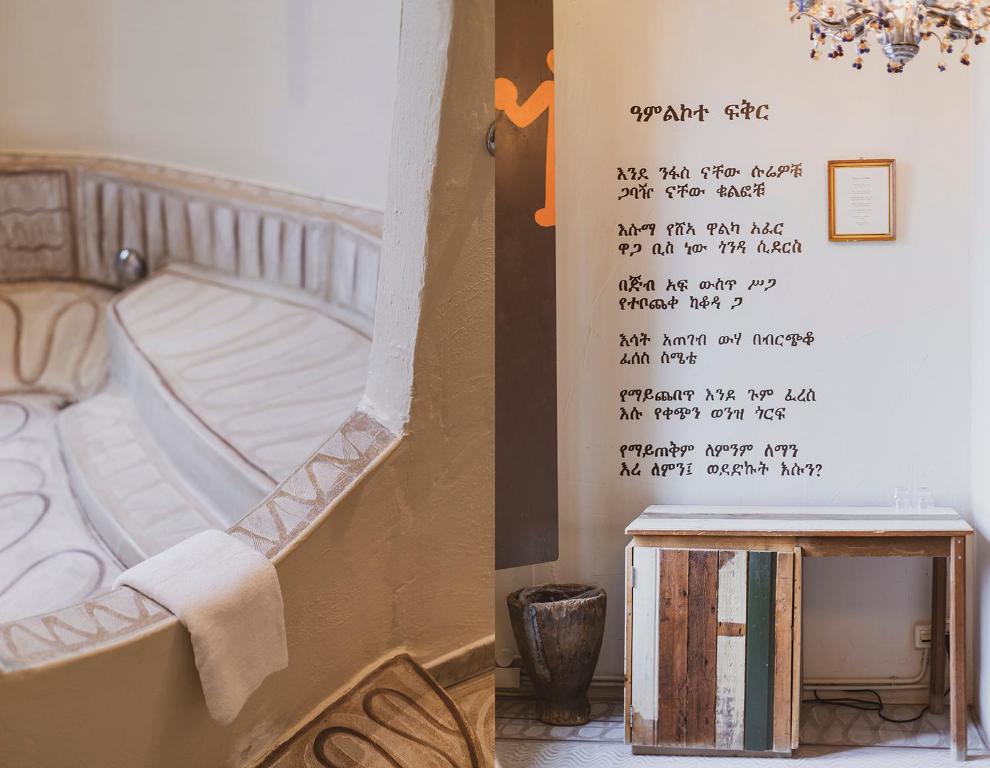 ዓምልኮተ ፍቅር
እንደ ንፋስ ናቸው ሱሬዎቹ
ጋባዥ ናቸው ቁልፎቹ
እሱማ የሸኣ ዋልካ አፈር
ዋጋ ቢስ ነው ጎንዳ ሲደርስ
በጅብ አፍ ውስጥ ሥጋ
የተቦጨቀ ከቆዳ ጋ
እሳት አጠገብ ውሃ በብርጭቆ
ፈሰስ ስሜቴ
የማይጨበጥ እንደ ጉም ፈረስ
እሱ የቀጭን ወንዝ ጎርፍ
የማይጠቅም ለምንም ለማን
እረ ለምን፤ ወደድኩት እሱን?